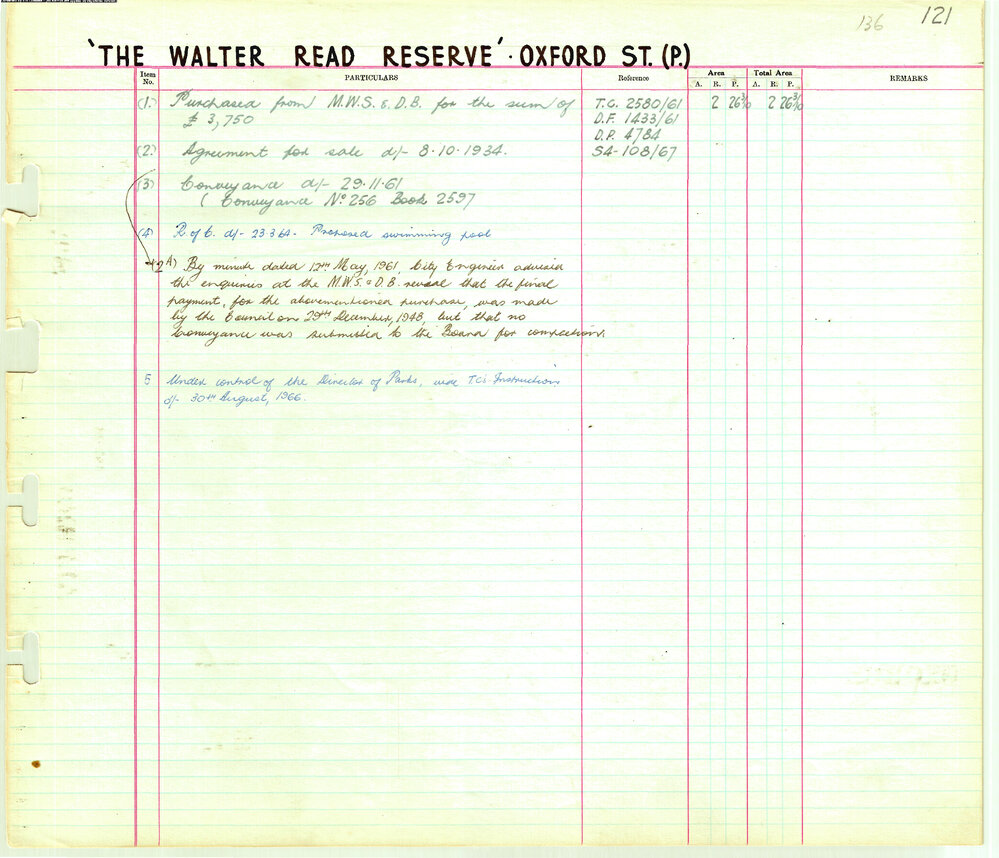 136
121
'THE WALTER READ RESERVE' · OXFORD ST. (P.)
Item No. PARTICULARS Reference Area Total Area REMARKS
A. R. P. A. R. P.
(1.) Purchased from M.W.S. & D.B. for the sum of T.C. 2580/61 2 26 3/10 2 26 3/10
£ 3,750 D.F. 1433/61
D.P. 4784
(2.) Agreement for sale d/- 8·10·1934. S4-108/67
(3) Conveyance d/- 29·11·61
( Conveyance No 256 Book 2597
(4) R. of C. d/- 23.3.64. Proposed swimming pool
2A) By minute dated 12th May, 1961, City Engineer advised
the enquiries at the M.W.S. & D.B. reveal that the final
payment, for the abovementioned purchase, was made
by the Council on 29th December, 1948, but that no
Conveyance was submitted to the Board for completion.
5 Under control of the Director of Parks, vide T.C's Instructions
d/- 30th August, 1966.